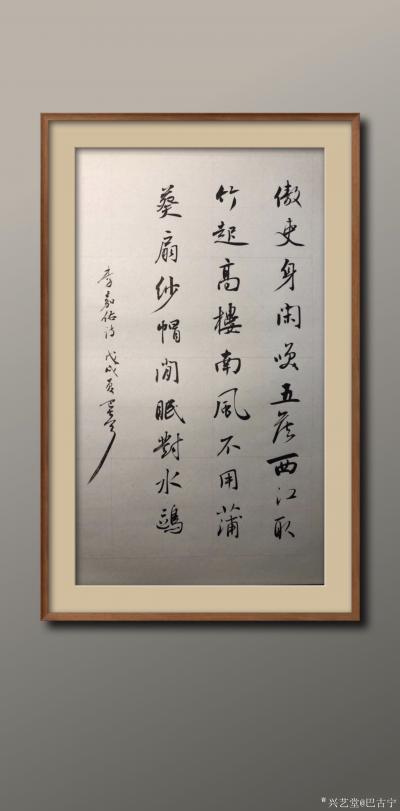 傲吏身闲咲五侯西江取
竹起高樓南風不用蒲
葵扇紗帽閒眠對水鷗
李嘉佑诗 戊戌夏
兴艺堂@巴古宁